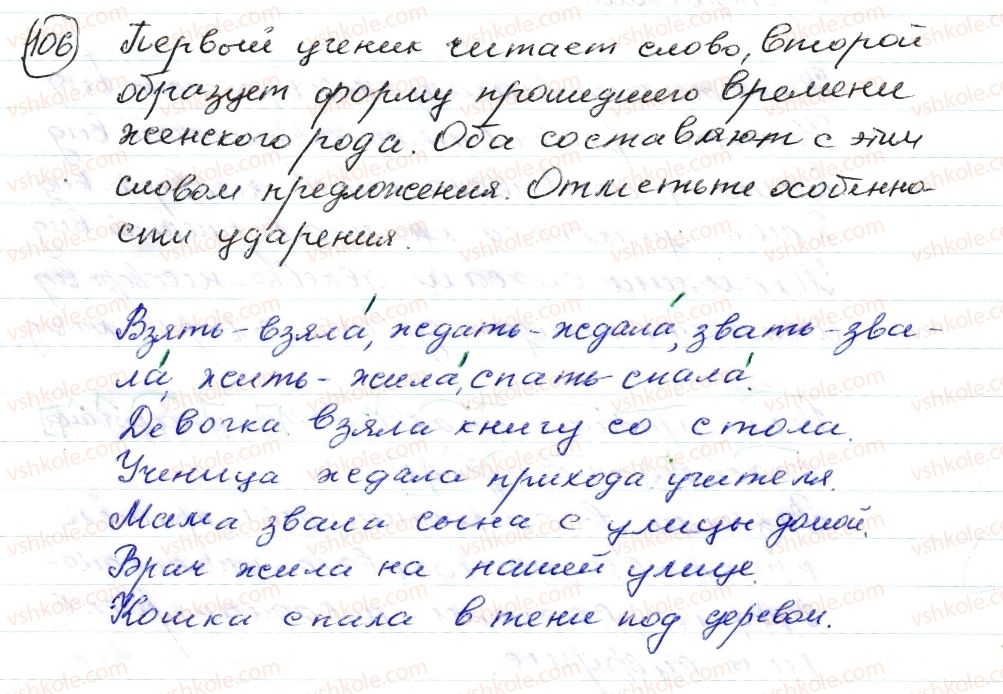 106 Первый ученик читает слово, второй
образует форму прошедшего времени
женского рода. Оба составляют с этим
словом предложения. Отметьте особенно-
сти ударения.
Взять - взяла́, ждать - ждала́, звать - зва-
ла́, жить - жила́, спать - спала́.
Девочка взяла книгу со стола.
Ученица ждала прихода учителя.
Мама звала сына с улицы домой.
Врач жила на нашей улице.
Кошка спала в тени под деревом.